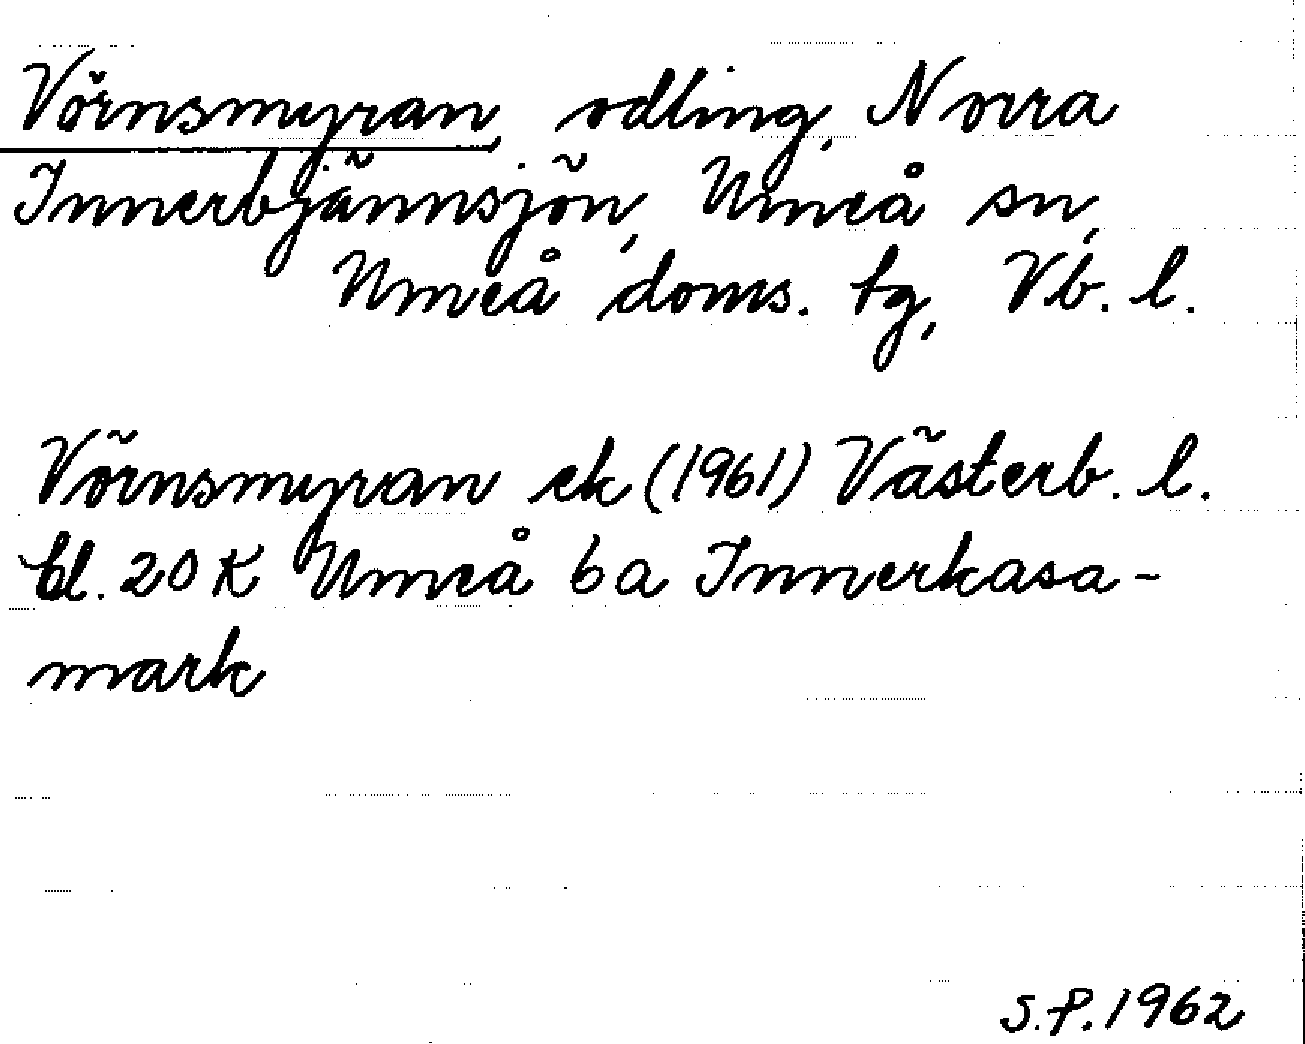 Vörnsmyran, odling, Norra
Innerbjännsjön, Umeå sn,
Umeå doms. tg, Vb. l.
Vörnsmyran ek (1961) Västerb. l.
bl. 20 K Umeå 6 a Innerkasa-
mark
S.P. 1962